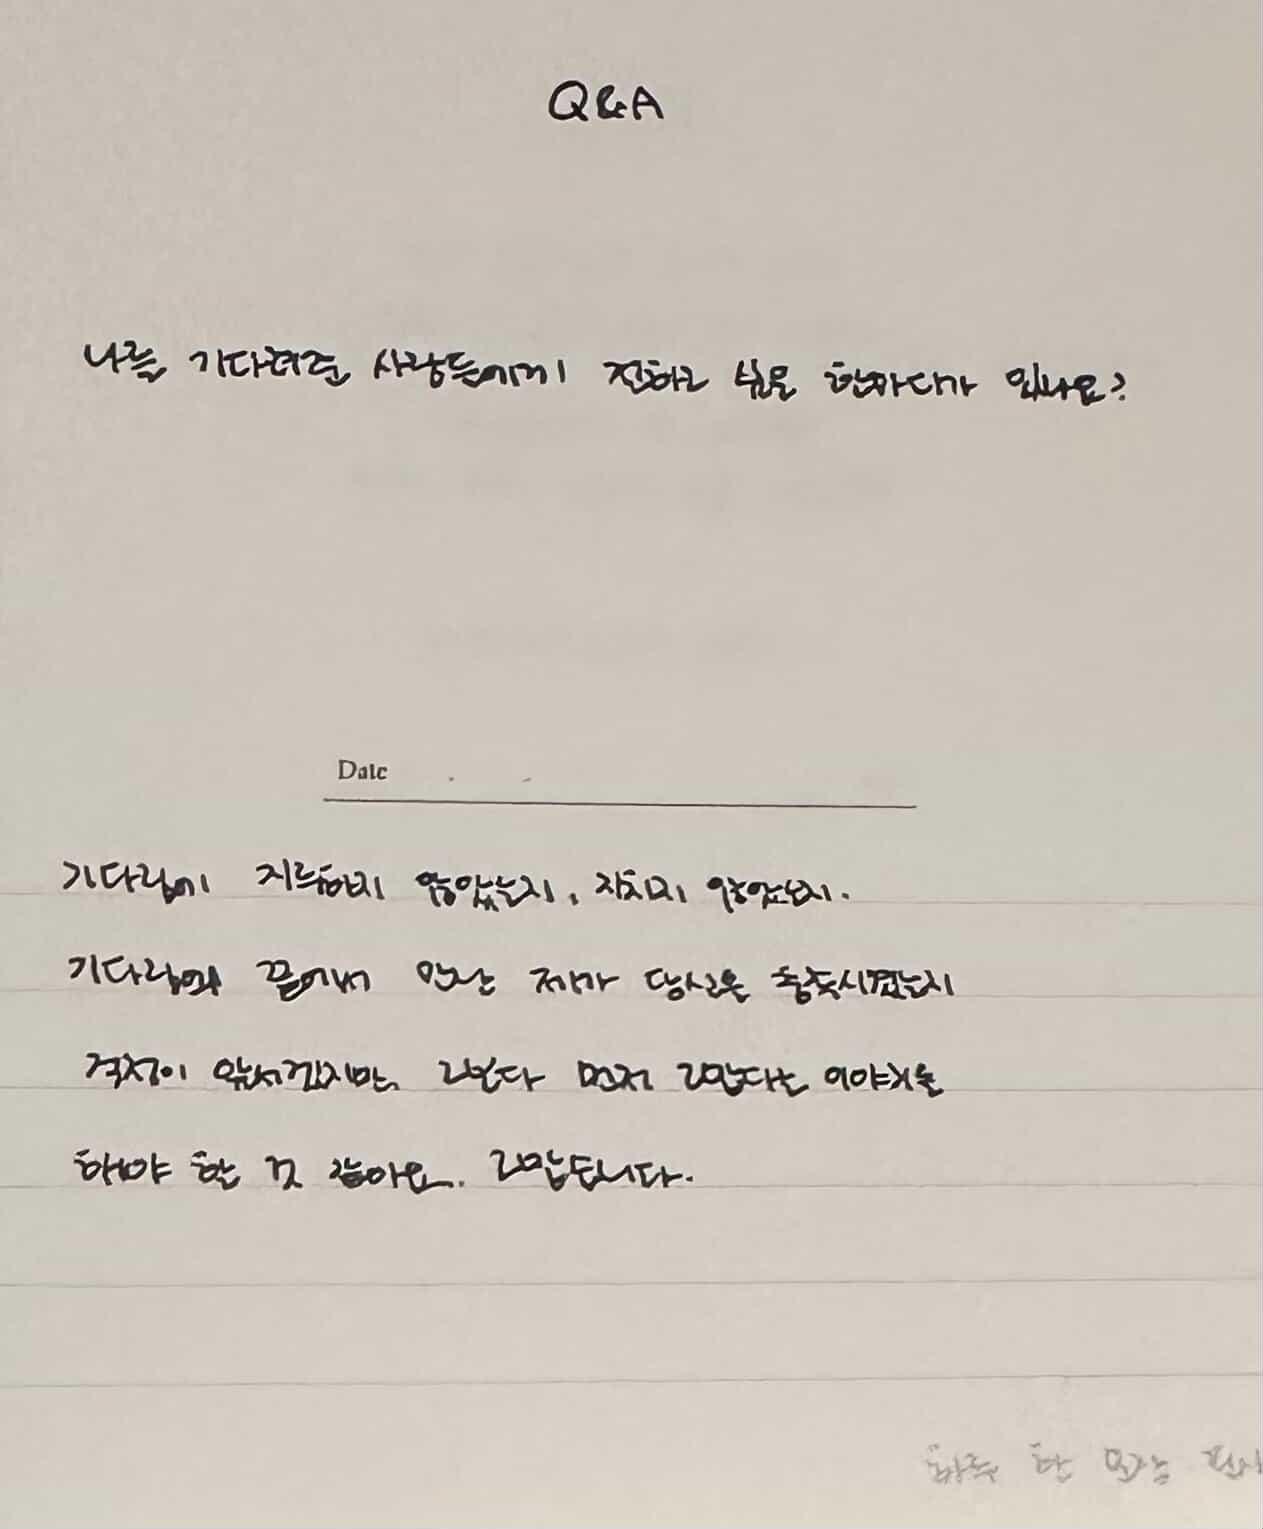 Q&A
나를 기다려준 사람들에게 전하고 싶은 한마디가 있나요?
Date
기다림이 지루하지 않았는지, 지치지 않았는지.
기다림의 끝에서 만난 제가 당신을 충족시켰는지
걱정이 앞서겠지만, 그보다 먼저 고맙다는 이야기를
해야 할 것 같아요. 고맙습니다.
하루 한 문장 필사